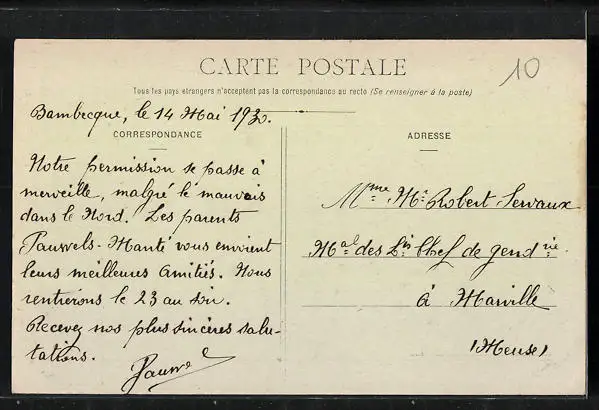 CARTE POSTALE
10
Tous les pays étrangers n'acceptent pas la correspondance au recto (Se renseigner à la poste)
Bambecque, le 14 Mai 1930.
CORRESPONDANCE
Notre permission se passe à
merveille, malgré le mauvais
dans le Nord. Les parents
Pauwels-Manté vous envoient
leurs meilleures amitiés. Nous
rentrerons le 23 au soir.
Recevez nos plus sincères salu-
tations.
ADRESSE
Mme Mr Robert Servaux
Mal des Lis Chef de gendrie
à Marville
(Meuse)